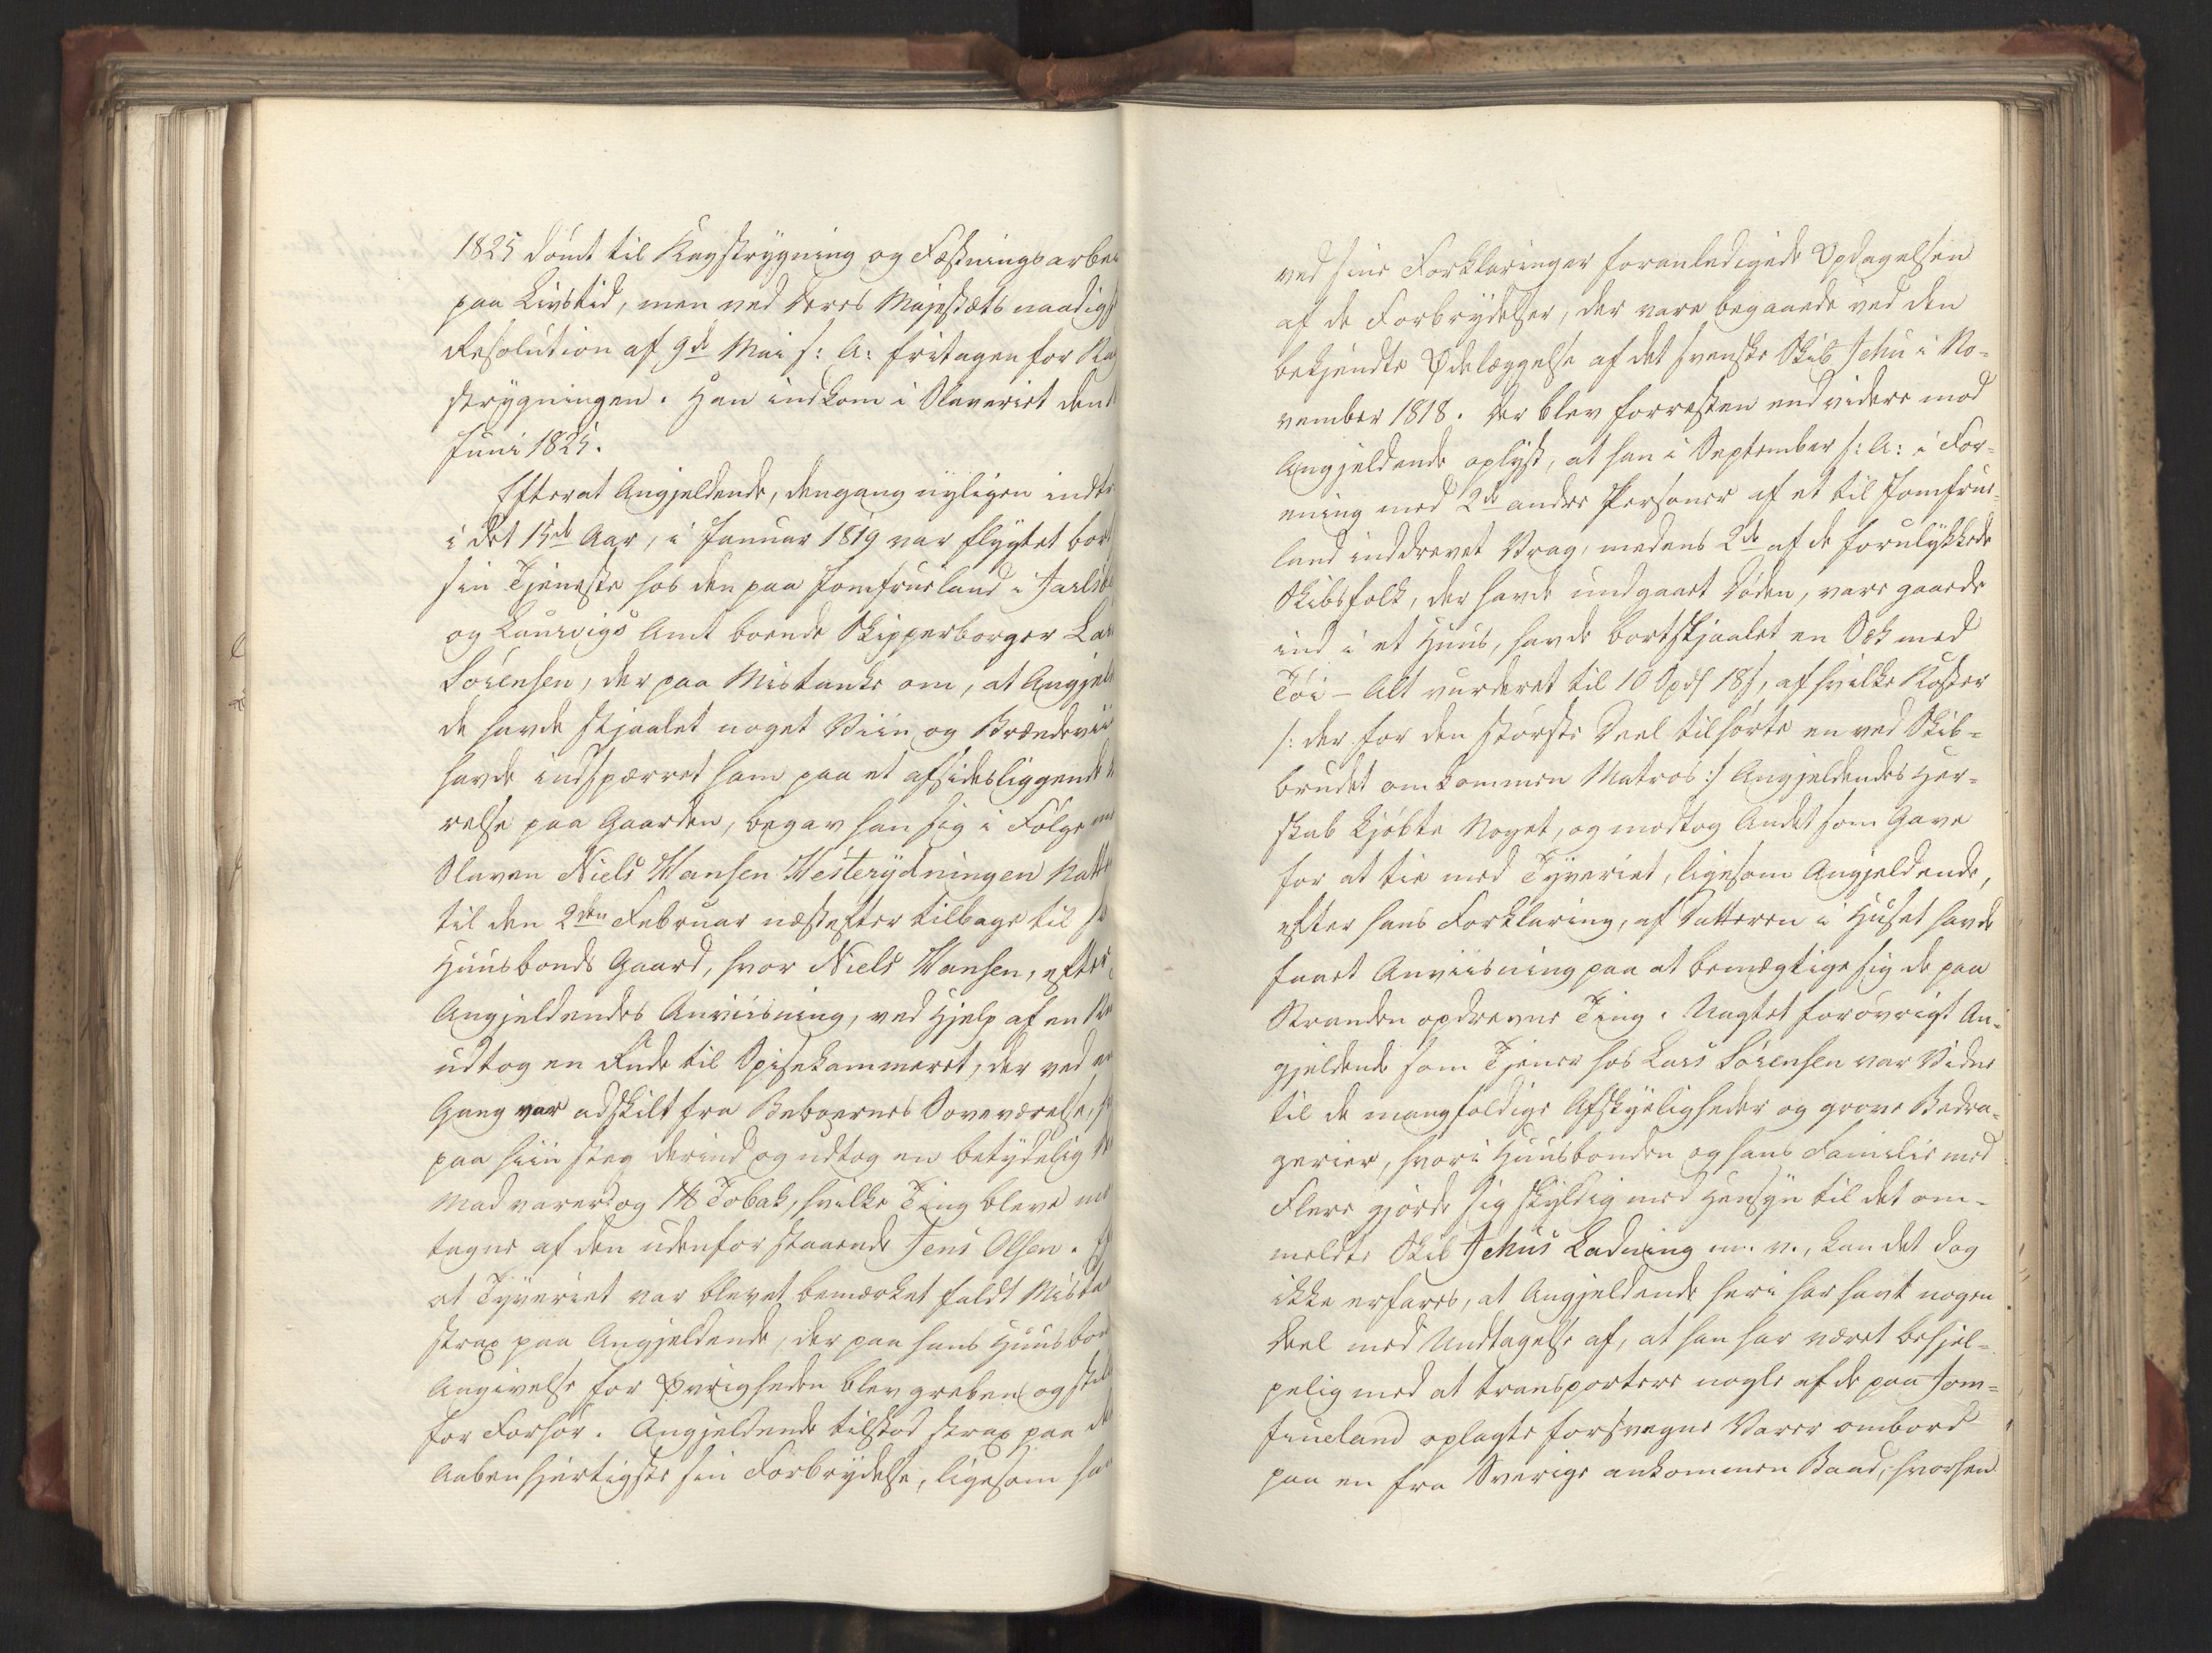 1825 dömt til Kagstrygning og Fæstningsarbei
paa Livstid, men ved Deres Majestæts naadigst
Resolution af 9de Mai s: A: fritagen for Kag
strygningen. Han indkom i Slaveriet den
Juni 1825.
Efterat Angjeldende, dengang nyligen indtr
i det 15de Aar, i Januar 1819 var flygtet bort
sin Tjeneste hos den paa Jomfrueland i Jarlsb
og Laurvigs Amt boende Skipperborger Lars
Sörensen, der paa Mistanke om, at Angjeld
de havde stjaalet noget Viin og Brændeviin
havde indspærret ham paa et afsidesliggende
relse paa Gaarden, begav han sig i Fölge
Slaven Niels Hansen Westerydningen Natt
til den 2den Februar næstefter tilbage til
Huusbonds Gaard, hvor Niels Hansen, efter
Angjeldendes Anviisning, ved Hjelp af en
udtog en Rude til Spisekammeret, der ved en
Gang var adskilt fra Beboernes Soveværelse,
paa hiin steg derind og udtog en betydelig
Madvarer og 1 ℔ Tobak, hvilke Ting bleve
tagne af den udenfor staaende Jens Olsen.
at Tyveriet var blevet bemærket faldt Mista
strax paa Angjeldende, der paa hans Huusbon
Angivelse for Øvrigheden blev greben og still
for Forhör. Angjeldende tilstod strax paa
Aabenhjertigste sin Forbrydelse, ligesom han
ved sine Forklaringer foranledigede Opdagelsen
af de Forbrydelser, der vare begaaede ved den
bekjendte Ødelæggelse af det svenske Skib Jehu i No-
vember 1818. Der blev forresten endvidere mod
Angjeldende oplyst, at han i September s: A: i For-
ening med 2de andre Personer af et til Jomfrue-
land inddrevet Vrag, medens 2de af de forulykkede
Skibsfolk, der havde undgaaet Döden, vare gaaede
ind i et Huus, havde bortstjaalet en Sæk med
Töi – Alt vurderet til 10 Spd 18 s, af hvilke Koster
/: der for den störste Deel tilhörte en ved Skib-
brudet omkommen Matros :/ Angjeldendes Her-
skab kjöbte Noget, og modtog Andet som Gave
for at tie med Tyveriet, ligesom Angjeldende,
efter hans Forklaring, af Datteren i Huset havde
faaet Anviisning paa at bemægtige sig de paa
Stranden opdrevne Ting. Uagtet forövrigt An-
gjeldende som Tjener hos Lars Sörensen var Vidne
til de mangfoldige Afskyeligheder og grove Bedra-
gerier, hvori Huusbonden og hans Familie med
Flere gjorde sig skyldig med Hensyn til det om-
meldte Skib Jehus Ladning m. v., kan det dog
ikke erfares, at Angjeldende heri har havt nogen
Deel med Undtagelse af, at han har været behjel-
pelig med at transportere nogle af de paa Jom-
frueland oplagte forsvegne Varer ombord
paa en fra Sverige ankommen Baad, hvorhen